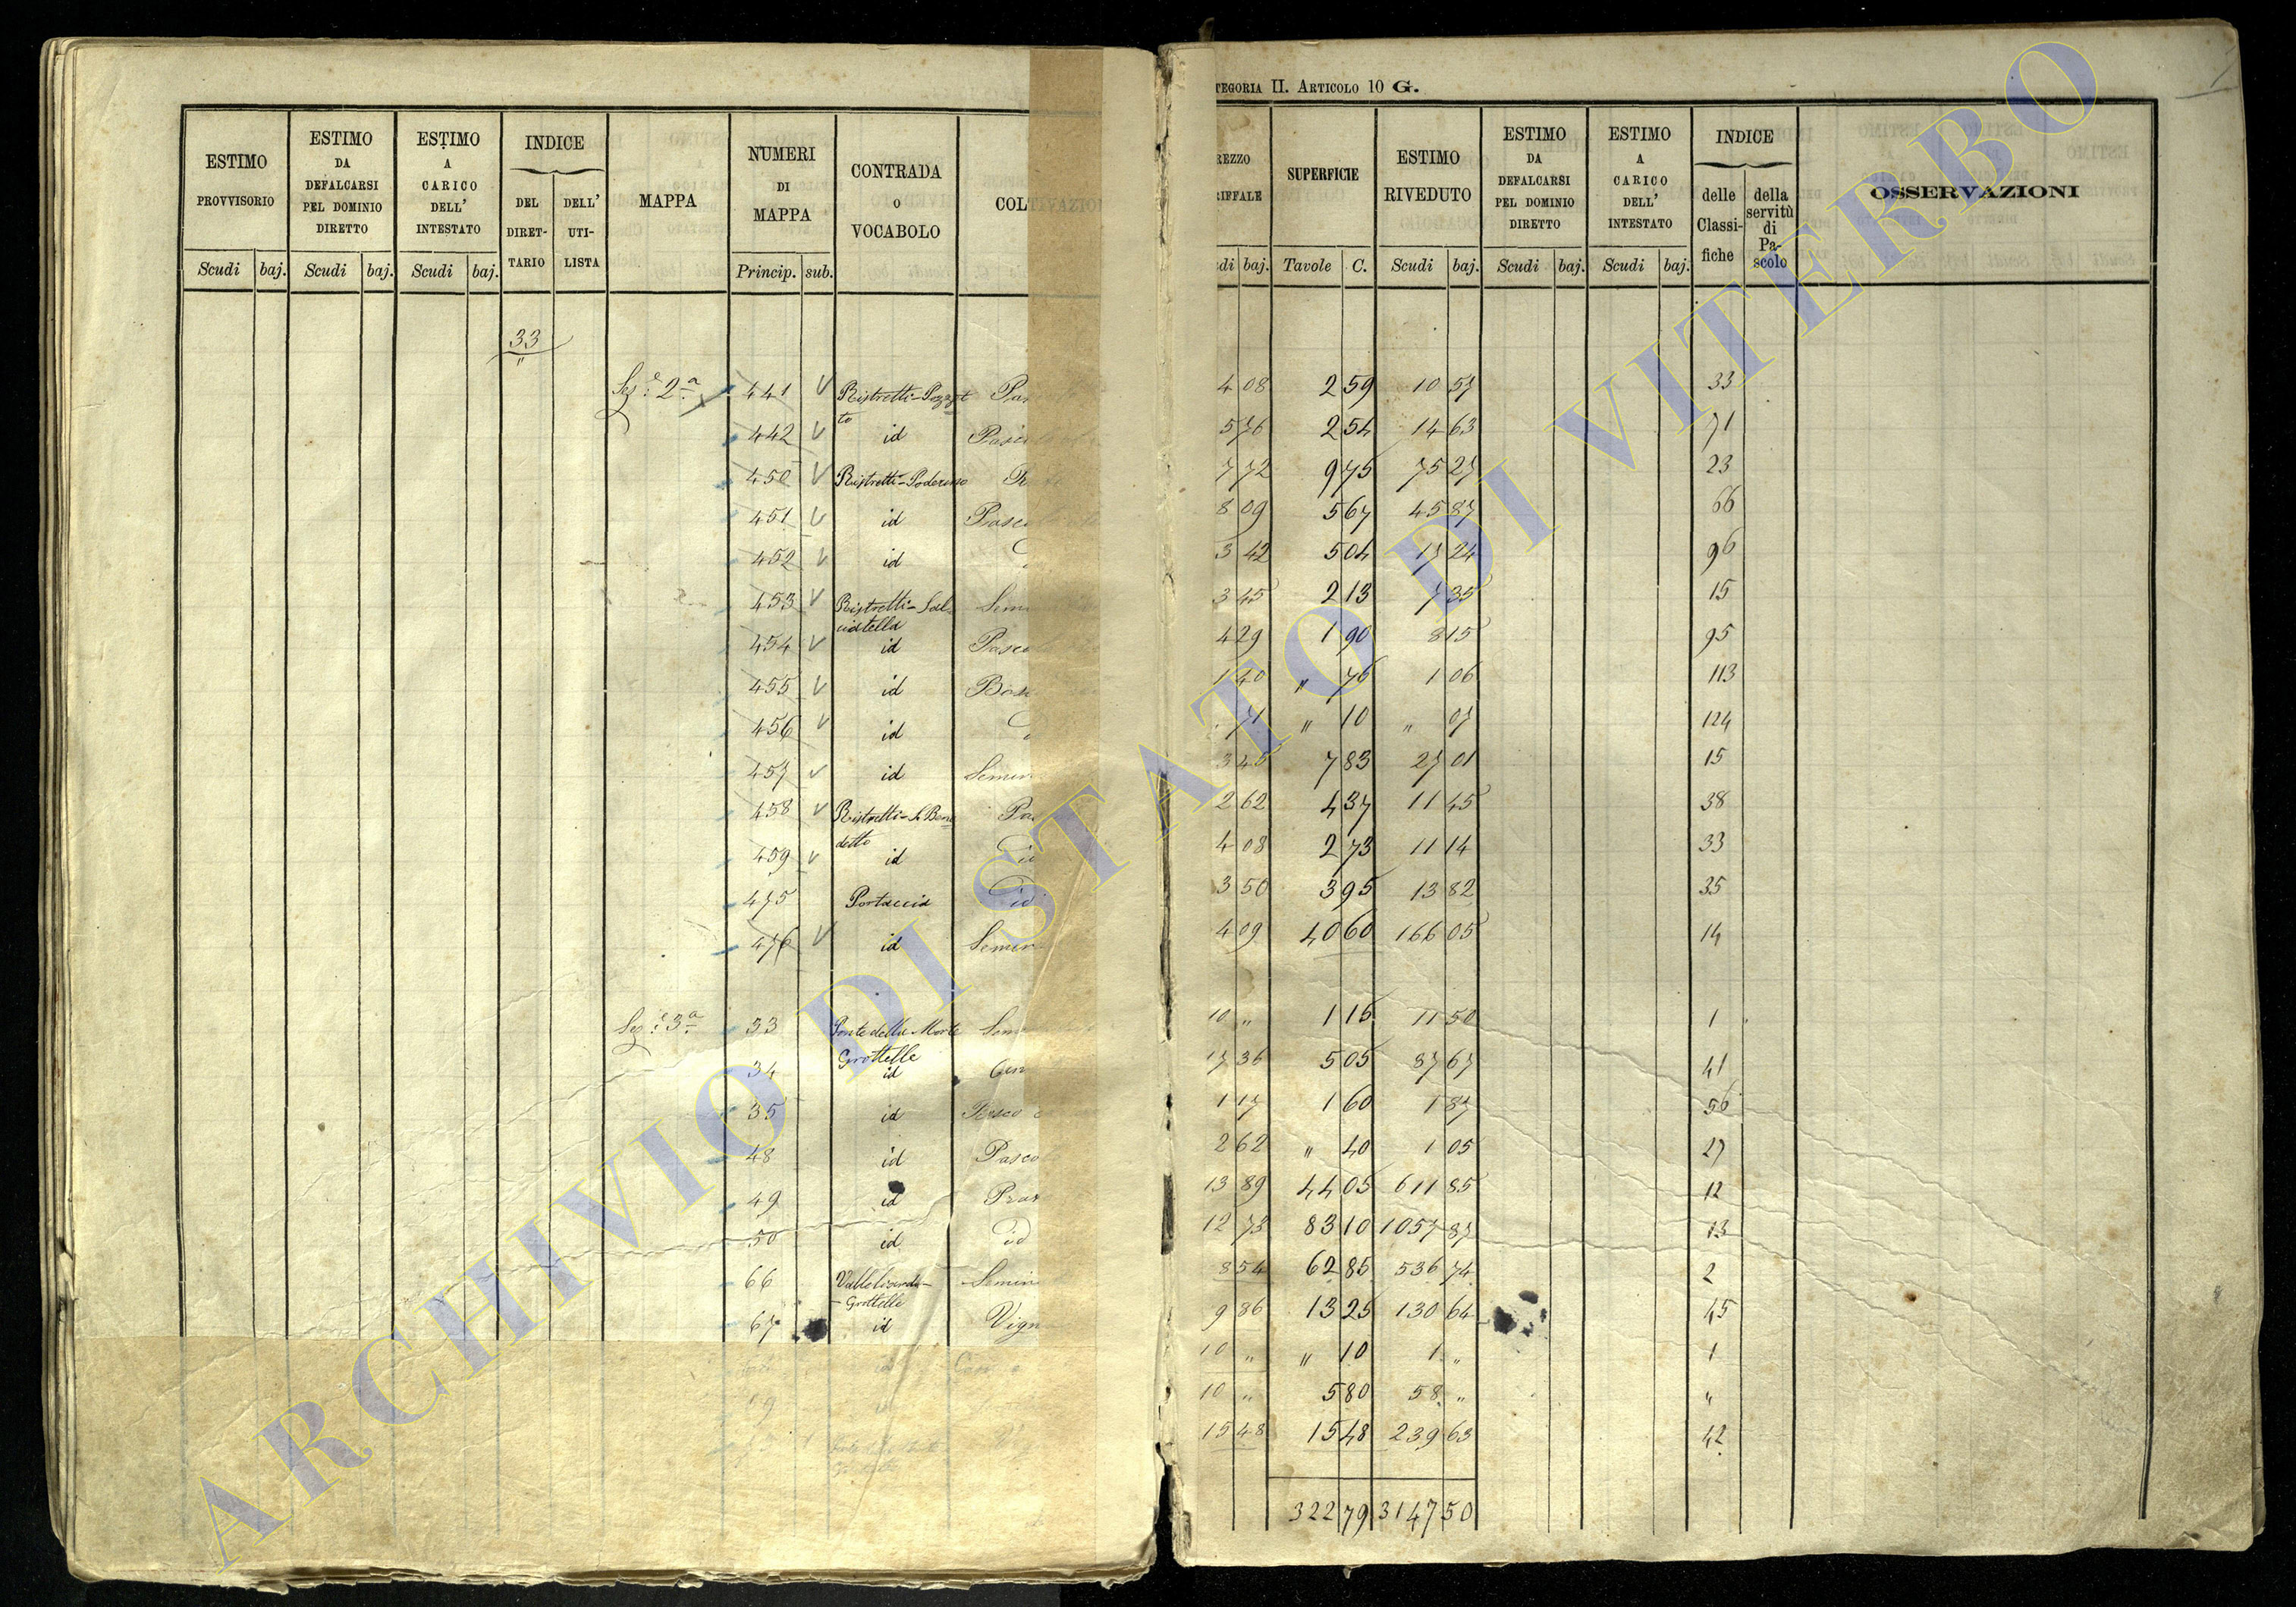 TEGORIA II. ARTICOLO 10 G.
ESTIMO PROVVISORIO
ESTIMO DA DEFALCARSI PEL DOMINIO DIRETTO
ESTIMO A CARICO DELL' INTESTATO
INDICE
DEL DIRET-TARIO
DELL' UTI-LISTA
MAPPA
NUMERI DI MAPPA
CONTRADA O VOCABOLO
COLTIVAZION
Scudi baj. Scudi baj. Scudi baj. Princip. sub.
33
"
Sez.e 2a 441 V Ristretti-Pozzet
to
442 V id
450 V Ristretti-Poderino
451 V id Pasco
452 V id
453 V Ristretti-Sal-
ciatella
454 V id Pasco
455 V id
456 V id
457 V id Semin
458 V Ristretti-S. Bene
detto
459 V id id
475 Portaccia id
476 V id Semin
Sez.e 3a 33 Ponte della Morte
Grottelle
34 id
35 id
48 id Pasco
49 id
50 id id
66
Grottelle Semin
67 id Vign
REZZO RIFFALE
SUPERFICIE
ESTIMO RIVEDUTO
ESTIMO DA DEFALCARSI PEL DOMINIO DIRETTO
ESTIMO A CARICO DELL' INTESTATO
INDICE
delle Classi-fiche
della servitù di Pa-scolo
OSSERVAZIONI
di baj. Tavole C. Scudi baj. Scudi baj. Scudi baj.
4 08 2 59 10 57 33
5 76 2 54 14 63 71
7 72 9 75 75 27 23
8 09 5 67 45 87 66
3 42 5 04 17 24 96
3 45 2 13 7 35 15
4 29 1 90 8 15 95
1 40 " 76 1 06 113
71 " 10 " 07 124
3 45 7 83 27 01 15
2 62 4 37 11 45 38
4 08 2 73 11 14 33
3 50 3 95 13 82 35
4 09 40 60 166 05 14
10 " 1 15 11 50 1
17 36 5 05 87 67 41
1 17 1 60 1 87 56
2 62 " 40 1 05 27
13 89 44 05 611 85 12
12 73 83 10 1057 87 13
8 54 62 85 536 74 2
9 86 13 25 130 64 45
10 " " 10 1 " 1
10 " 5 80 58 " "
15 48 15 48 239 63 42
322 79 3147 50
ARCHIVIO DI STATO DI VITERBO